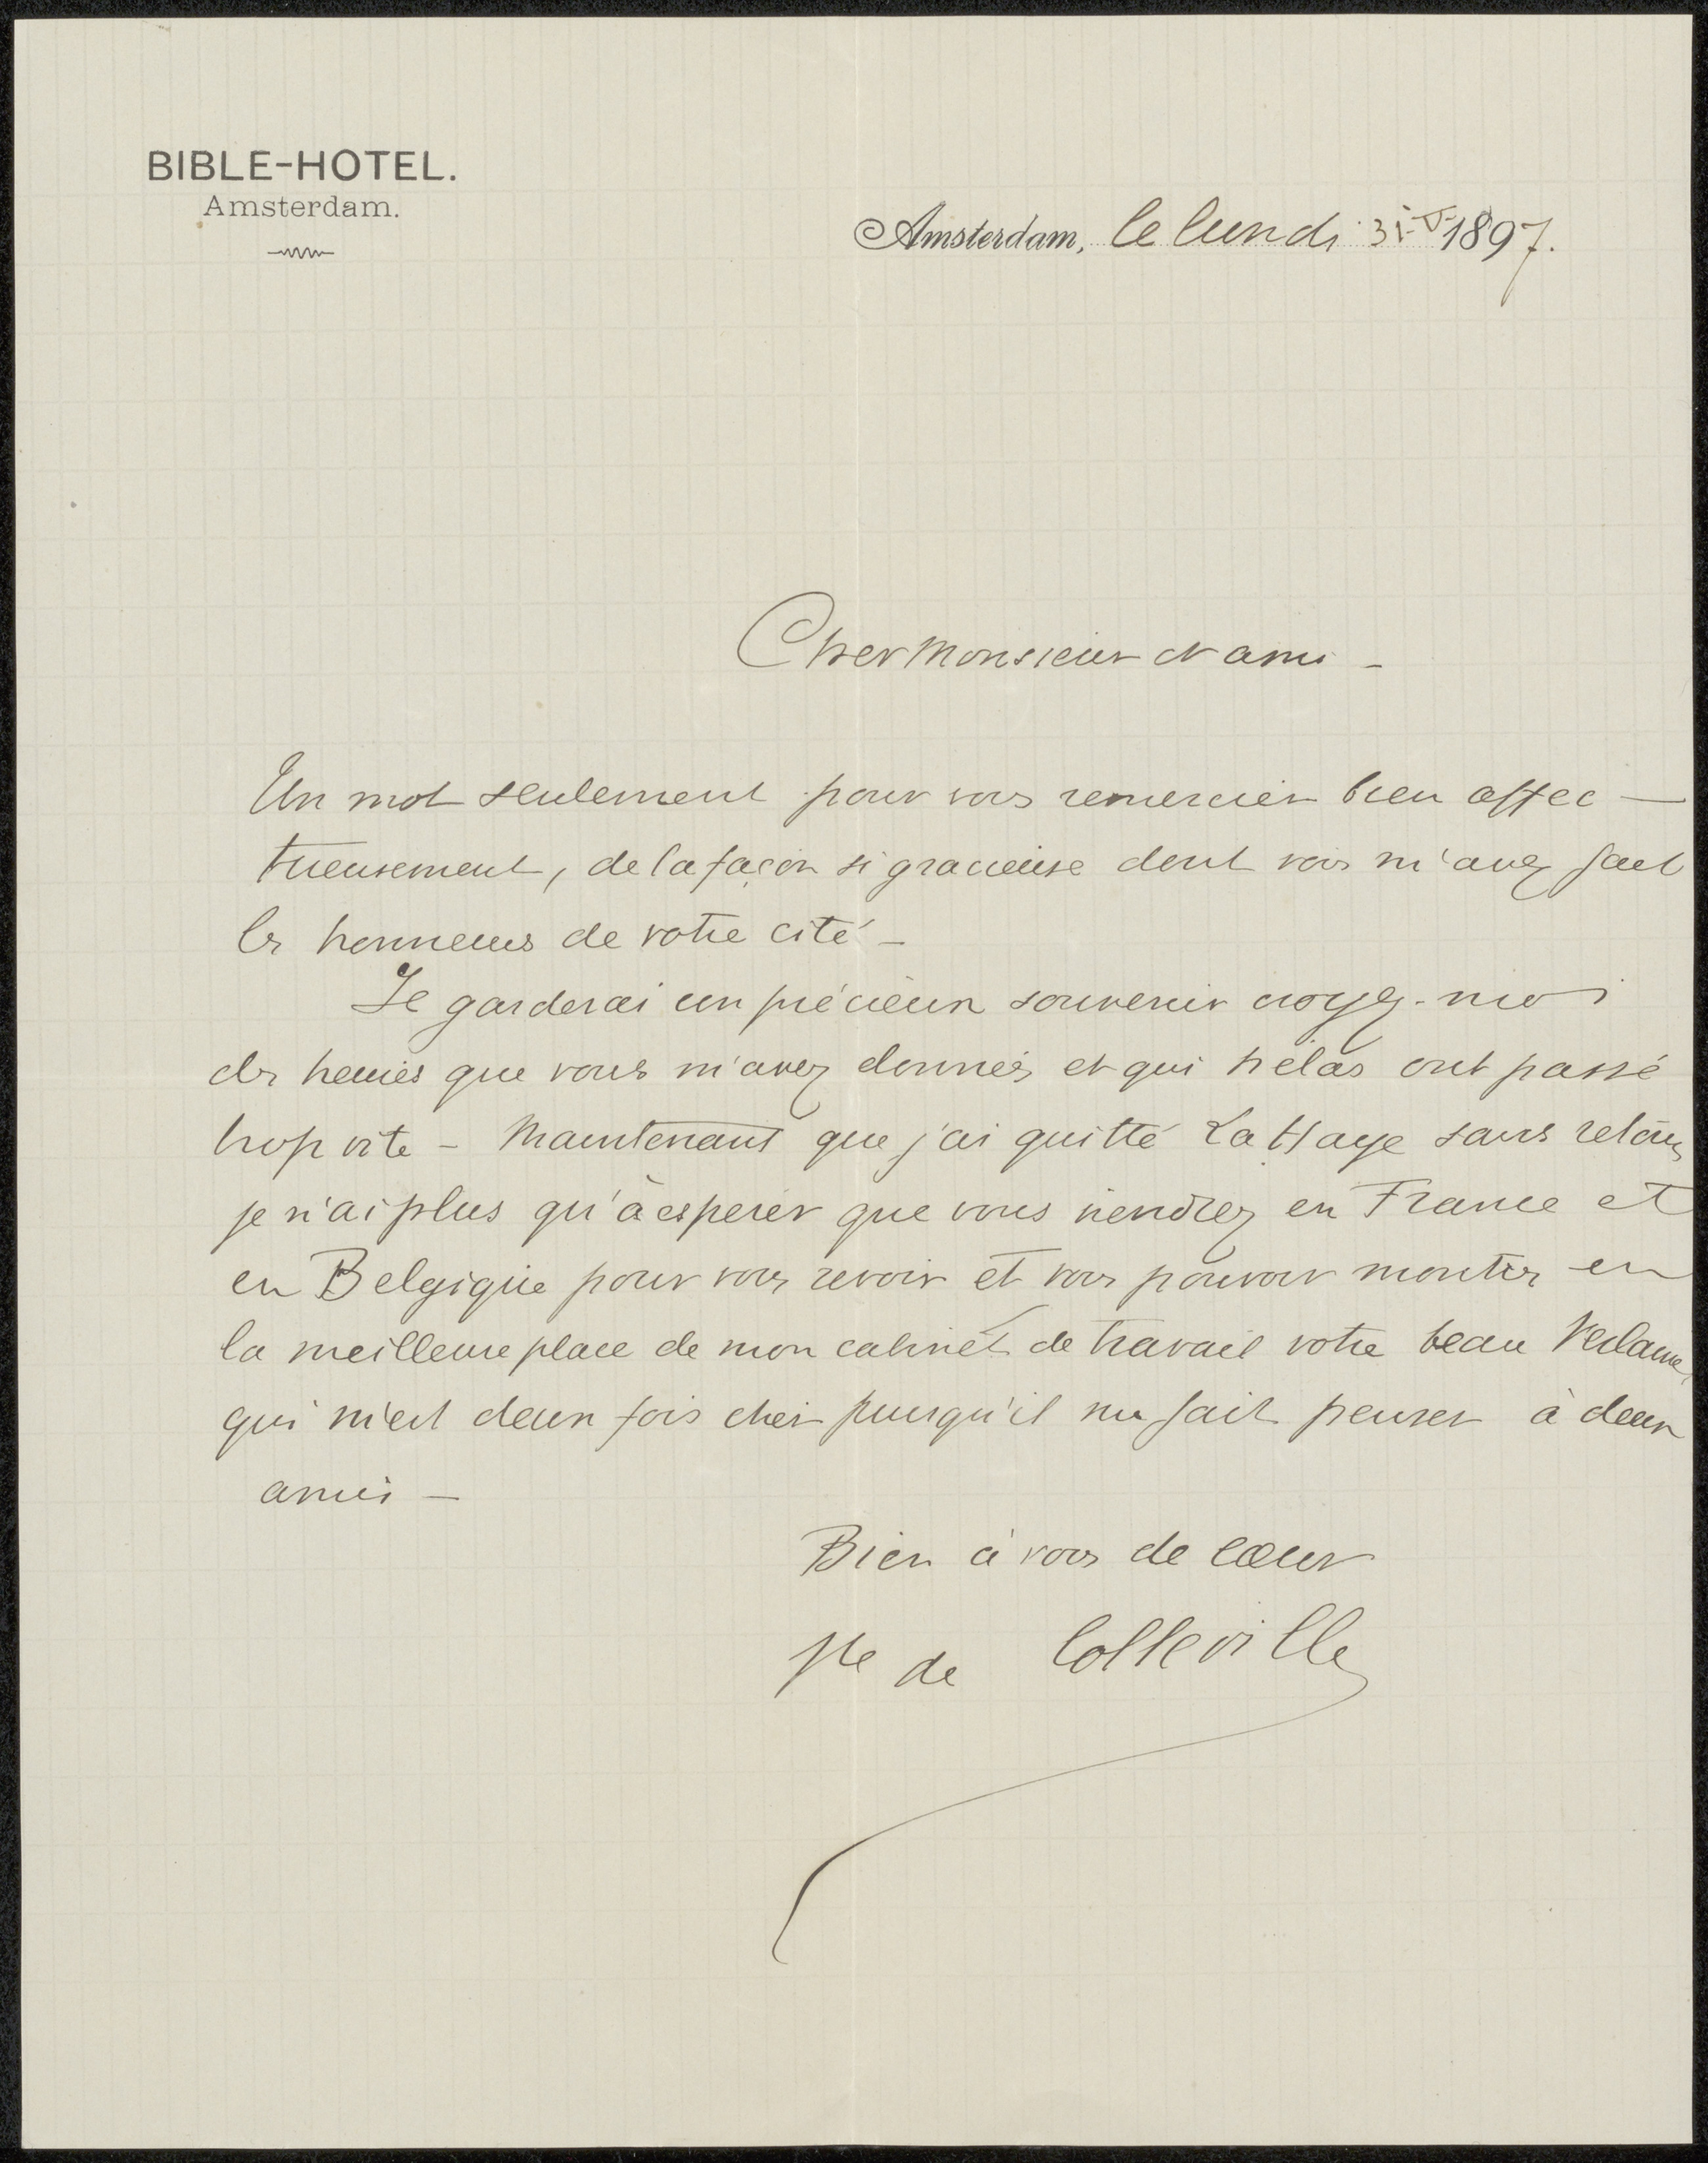 BIBLE-HOTEL.
Amsterdam.
Amsterdam, le lundi 31-V-1897.
Cher Monsieur et ami -
Un mot seulement pour vous remercier bien affec-
tueusement, de la façon si gracieuse dont vous m'avez fait
les honneurs de votre cité -
Je garderai un précieux souvenir croyez-moi
des heures que vous m'avez données et qui hélas ont passé
trop vite - Maintenant que j'ai quitté La Haye sans retour
je n'ai plus qu'à esperer que vous viendrez en France et
en Belgique pour vous revoir et vous pouvoir montrer en
la meilleure place de mon cabinet de travail votre beau Verlaine,
qui m'est deux fois cher puisqu'il me fait penser à deux
amis -
Bien à vous de cœur
Vte de Colleville